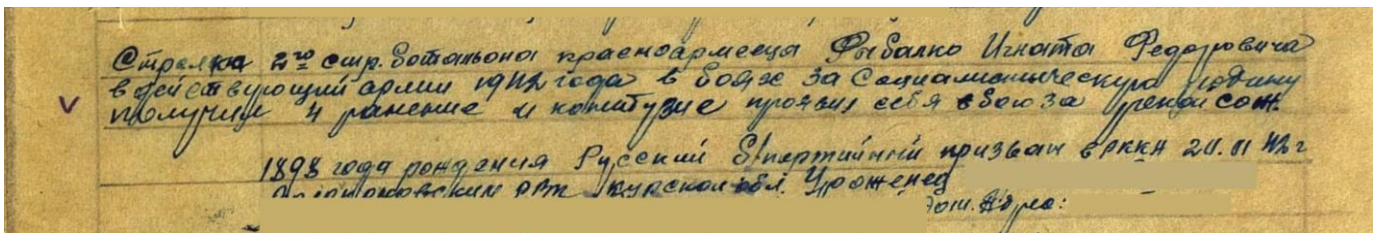 Стрелка 2го стр. батальона красноармейца Рыбалко Игната Федоровича
в действующий армии 1942 года в боях за Социалистическую родину
получил 4 ранение и контузие проявил себя в бою за рекой Сож.
1898 года рождения Русский б/партийный призван в РККА 20.11 42 г
РВК Курской обл. Уроженец
Дом. Адрес: